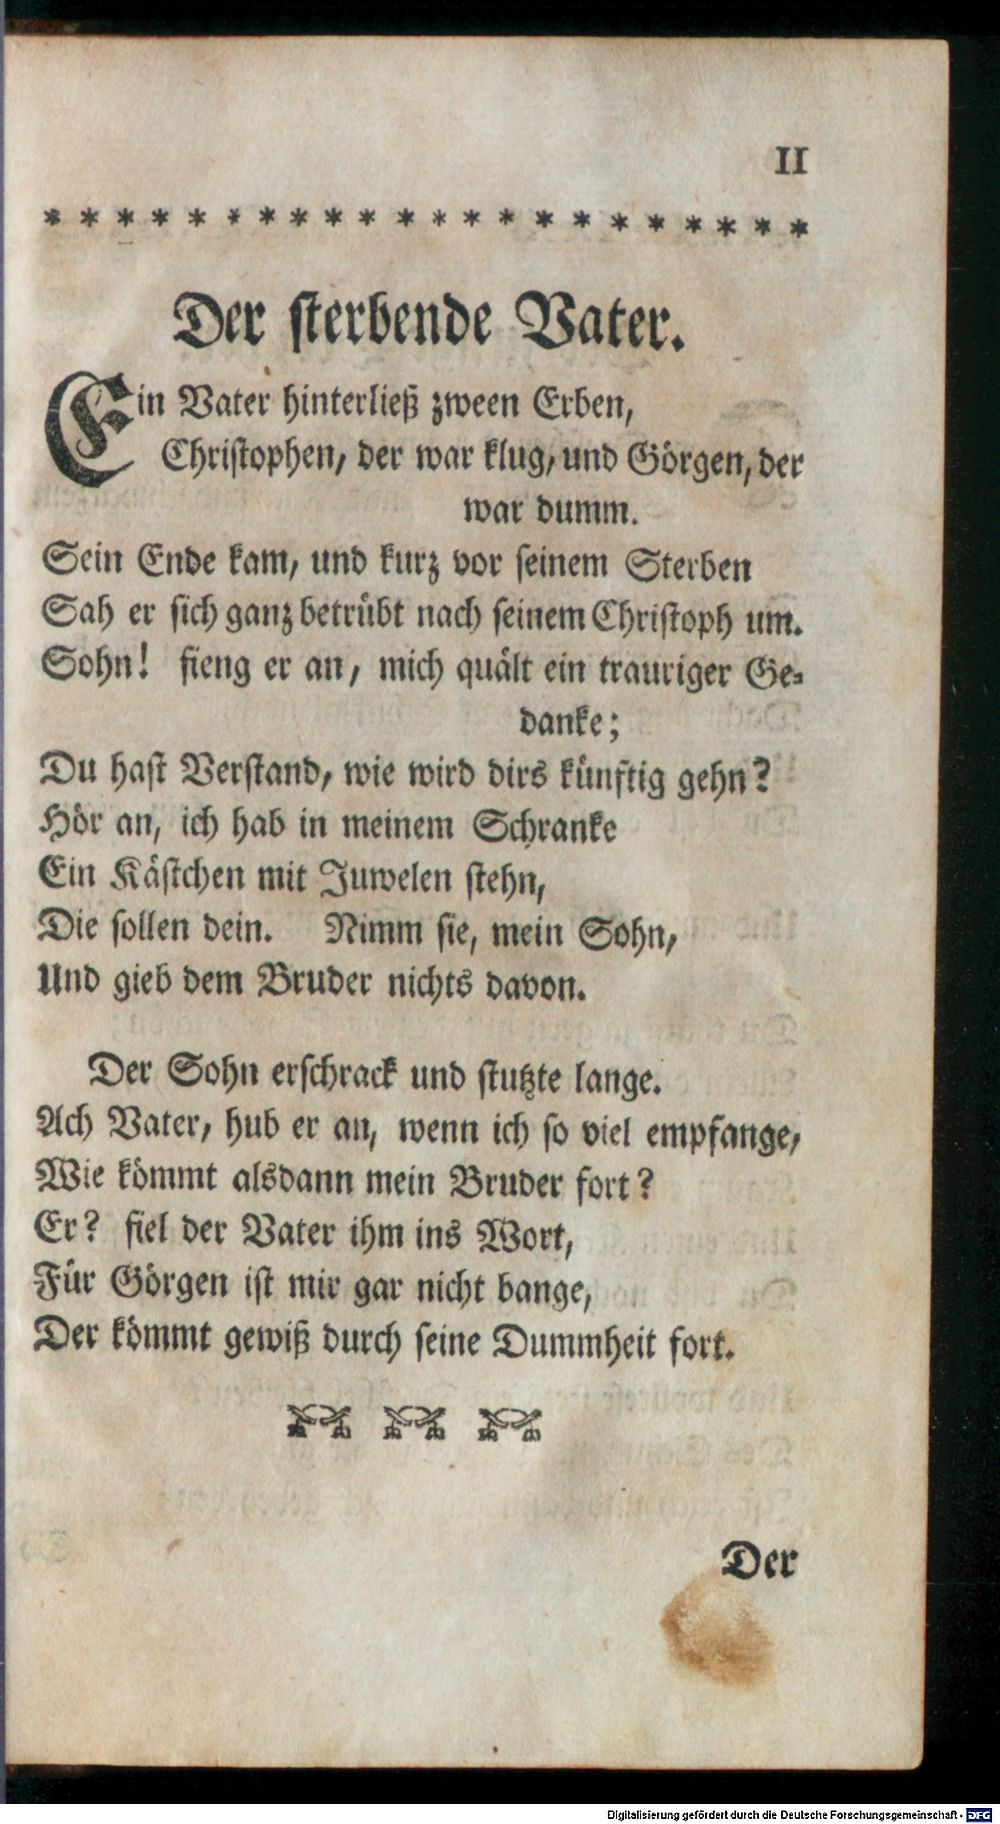 11
* * * * * * * * * * * * * * * * * * * * * *
Der sterbende Vater.
Ein Vater hinterließ zween Erben,
Christophen, der war klug, und Görgen, der
war dumm.
Sein Ende kam, und kurz vor seinem Sterben
Sah er sich ganz betrübt nach seinem Christoph um.
Sohn! fieng er an, mich quält ein trauriger Ge-
danke;
Du hast Verstand, wie wird dirs künftig gehn?
Hör an, ich hab in meinem Schranke
Ein Kästchen mit Juwelen stehn,
Die sollen dein. Nimm sie, mein Sohn,
Und gieb dem Bruder nichts davon.
Der Sohn erschrack und stutzte lange.
Ach Vater, hub er an, wenn ich so viel empfange,
Wie kömmt alsdann mein Bruder fort?
Er? fiel der Vater ihm ins Wort,
Für Görgen ist mir gar nicht bange,
Der kömmt gewiß durch seine Dummheit fort.
Der
Digitalisierung gefördert durch die Deutsche Forschungsgemeinschaft - DFG